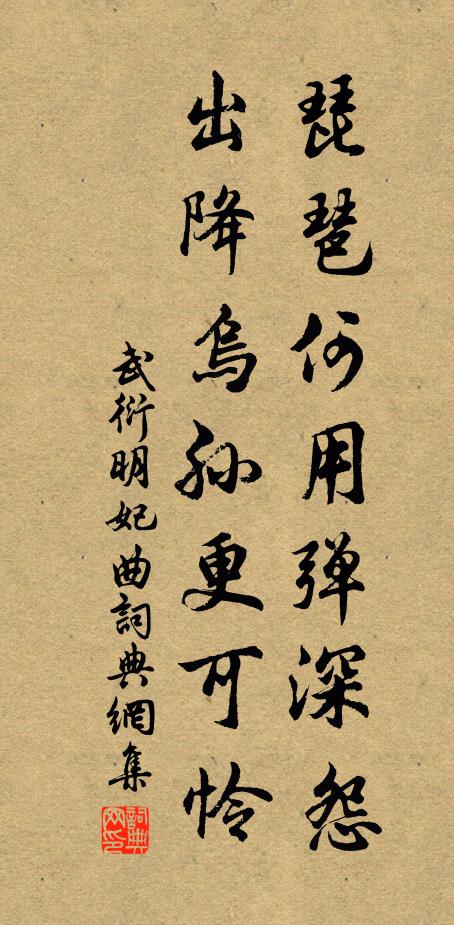 琵琶何用弹深怨
出降烏孙更可怜
武衍明妃曲詞典網集
詞典网印